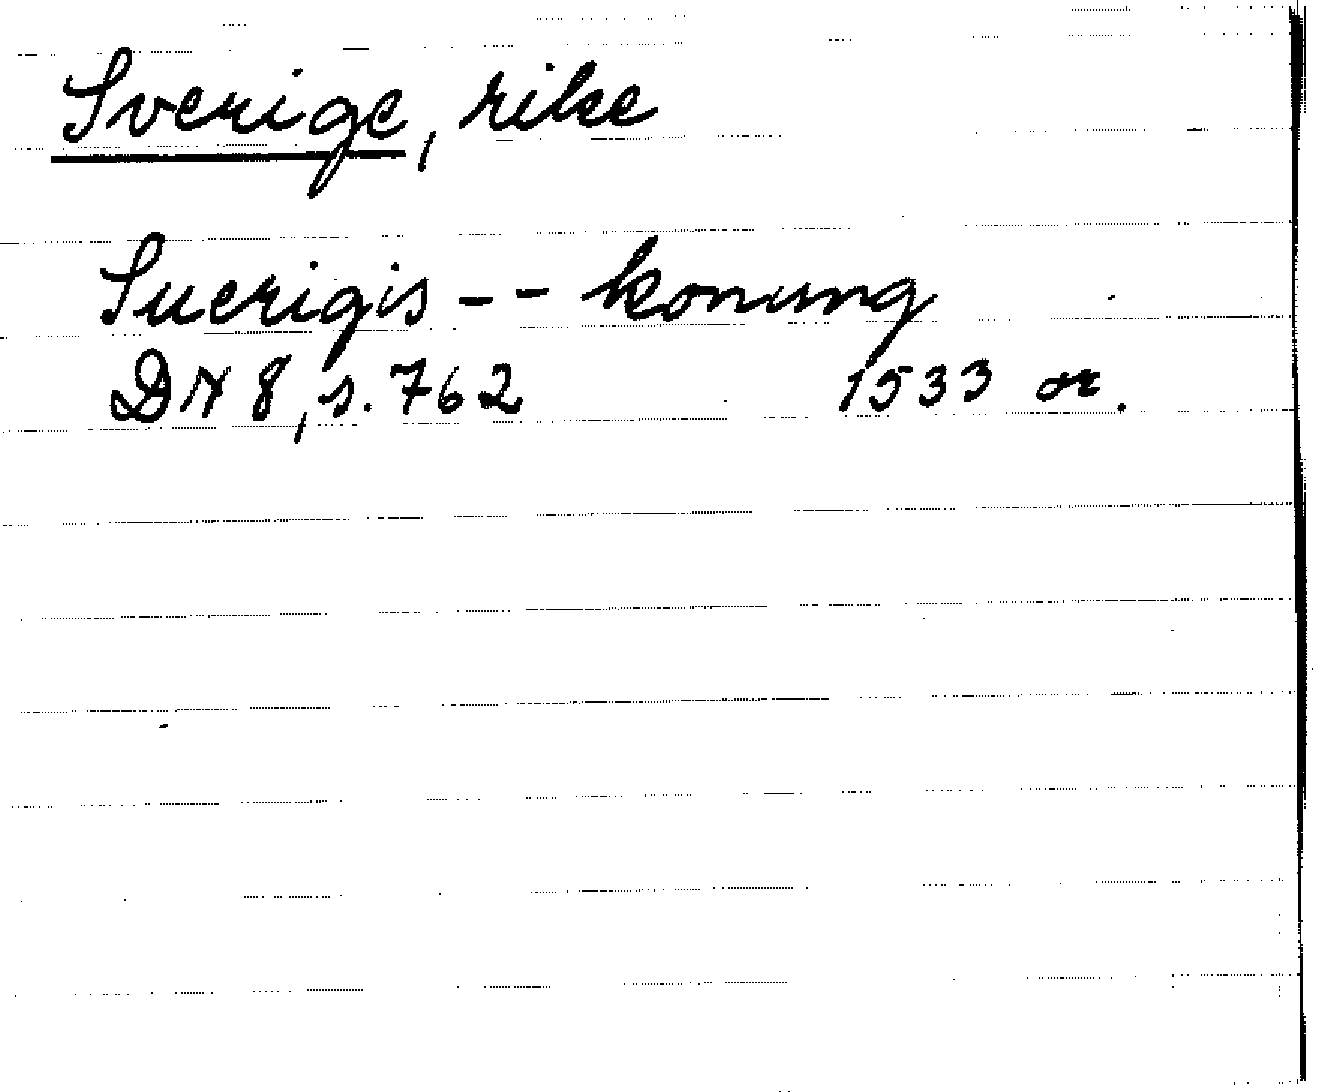 Sverige, rike
Suerigis -- konung
DN 8, s. 762 1533 or.